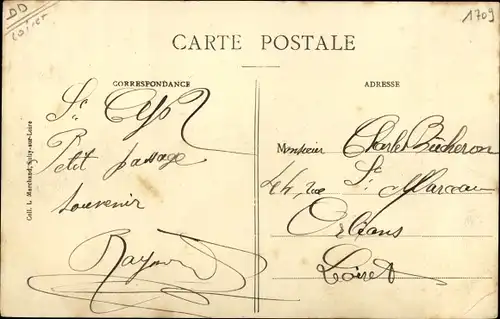 DD
Loiret
1709
CARTE POSTALE
CORRESPONDANCE
ADRESSE
Coll. L. Marchand, Sully-sur-Loire
St Cyr
Petit passage
souvenir
Raymond
Monsieur Charles Bucheron
44, rue St. Marceau
Orléans
Loiret